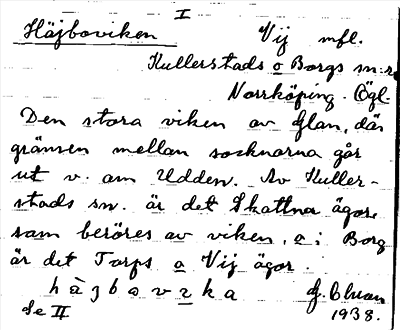 I
Häjboviken Vij mfl.
Kullerstads o Borgs sn:r
Norrköping. Ögl.
Den stora viken av Glan, där
gränsen mellan socknarna går
ut v. om Udden. Av Kuller-
stads sn. är det Skattna ägor,
som beröres av viken, o i Borg
är det Torps o Vij ägor.
Se II 1938.